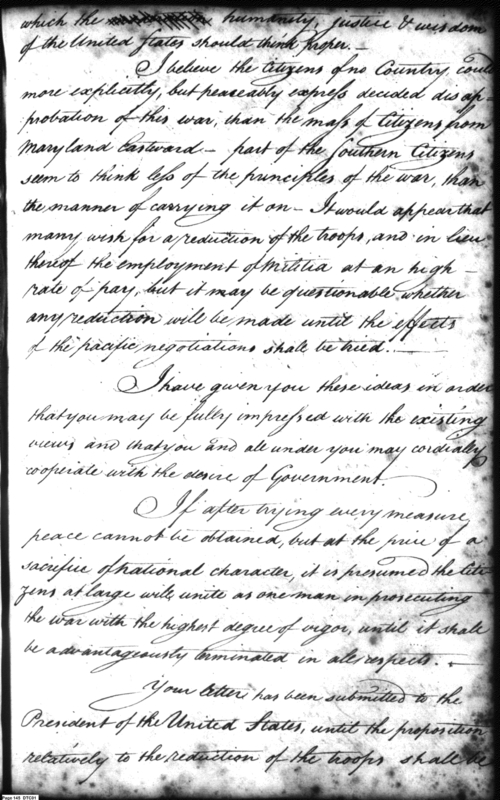 which the humanity, justice & wisdom
of the United States should think proper. —
I believe the Citizens of no Country, could
more explicitly, but peaceably express decided disap-
probation of this war, than the mass of Citizens from
Maryland Eastward — part of the Southern Citizens
seem to think less of the principles of the war, than
the manner of carrying it on — It would appear that
many wish for a reduction of the troops, and in lieu
thereof the employment of Militia at an high —
rate of pay, but it may be questionable whether
any reduction will be made until the effects
of the pacific negotiations shall be tried. —
I have given you these ideas in order
that you may be fully impressed with the existing
views and that you and all under you may cordially
cooperate with the desire of Government.
If after trying every measure
peace cannot be obtained, but at the price of a
sacrifice of national character, it is presumed the Citi-
zens at large will unite as one man in prosecuting
the war with the highest degree of vigor, until it shall
be advantageously terminated in all respects. —
Your letter has been submitted to the
President of the United States, until the proposition
relatively to the reduction of the troops shall be
Page 140 DTC01